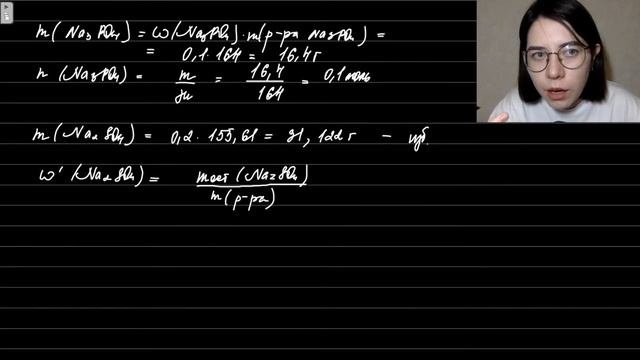 m(Na₃PO₄) = ω(Na₃PO₄)·m(р-ра Na₃PO₄) =
= 0,1·164 = 16,4 г
n(Na₃PO₄) = m/M = 16,4/164 = 0,1 моль
m(Na₂SO₄) = 0,2·155,61 = 31,122 г – изб.
ω'(Na₂SO₄) = mост(Na₂SO₄)/m(р-ра)